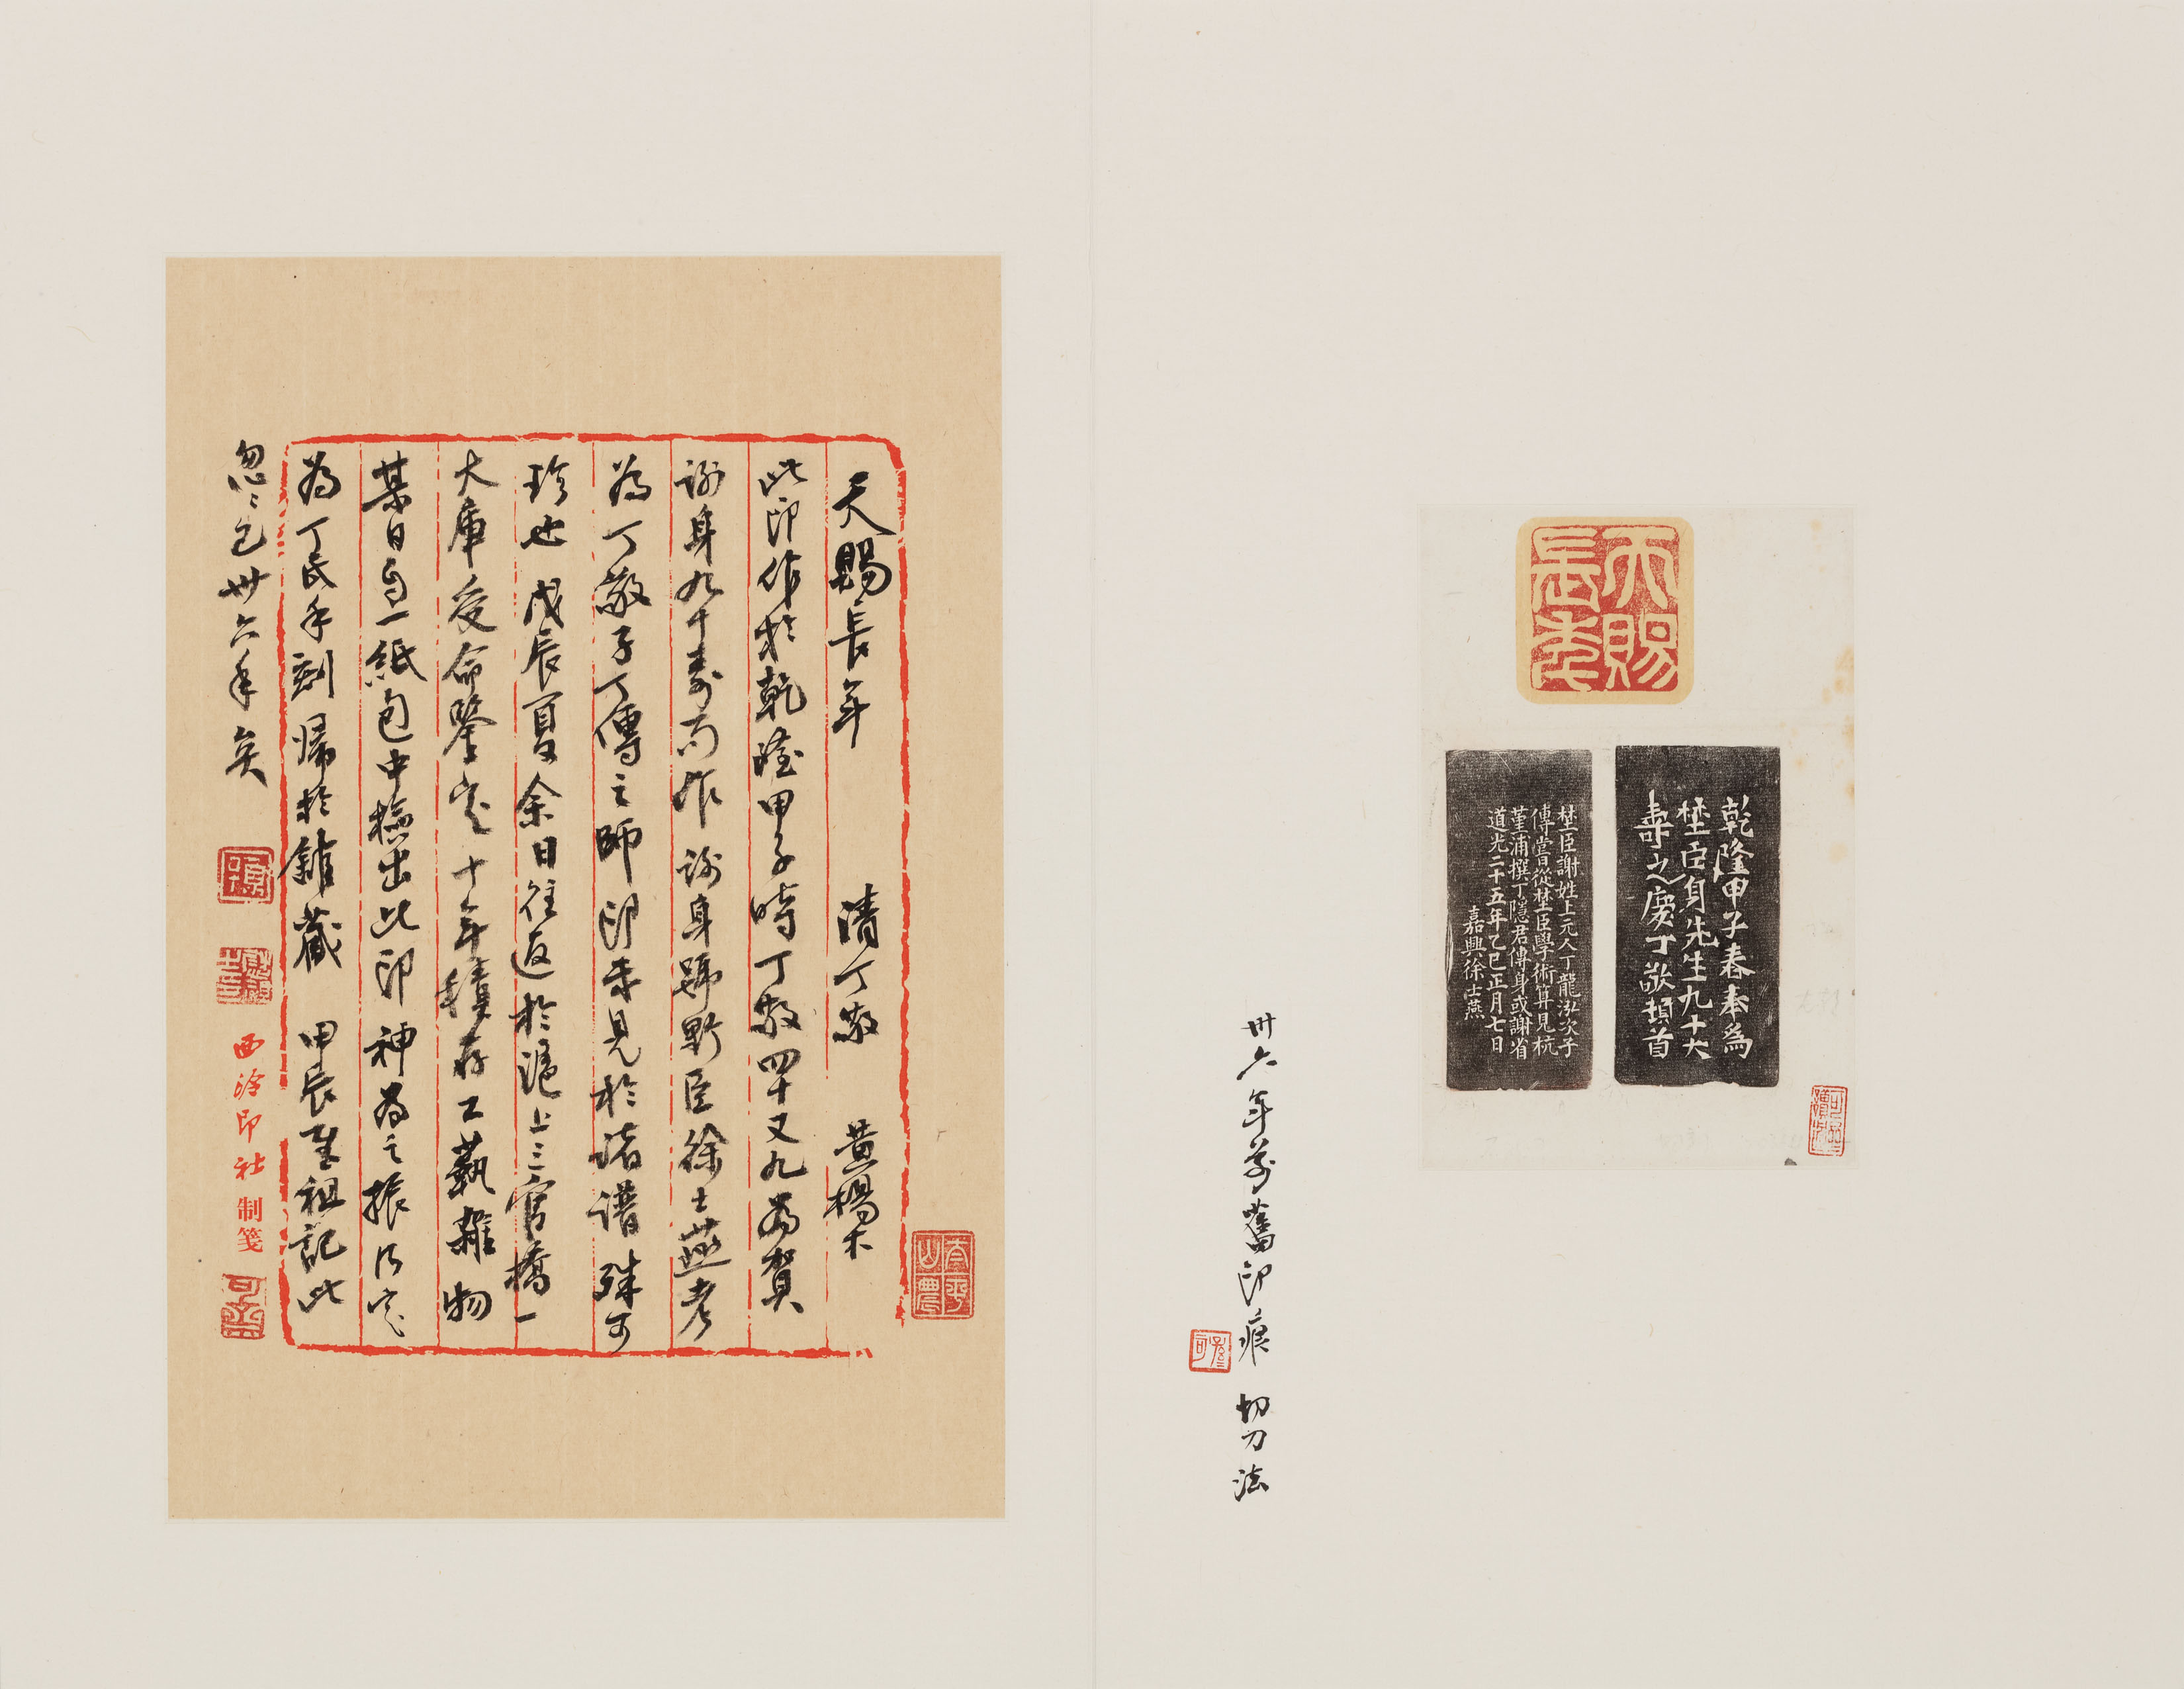 天賜長年
乾隆甲子春奉爲
埜臣身先生九十大
壽之慶丁敬頓首
埜臣謝姓上元人丁龍泓次子
傳嘗從埜臣學術算見杭
堇浦撰丁隱君傳身或謝省
道光二十五年乙巳正月七日
嘉興徐士燕
卅六年前舊印痕 切刀法
天賜長年 清丁敬 黄楊木
此印作於乾隆甲子時丁敬四十又九為賀
謝身九十壽而作 謝身號野臣徐士燕考
為丁敬子丁傳之師印未見於諸譜殊可
珍也 戊辰夏余日往返於滬上三官橋一
大庫受命鑒定十年積存工藝雜物
某日自一紙包中檢出此印神為之振後定
為丁氏手刻歸於館藏 甲辰重祖記此
忽忽已卅六年矣
西泠印社制箋